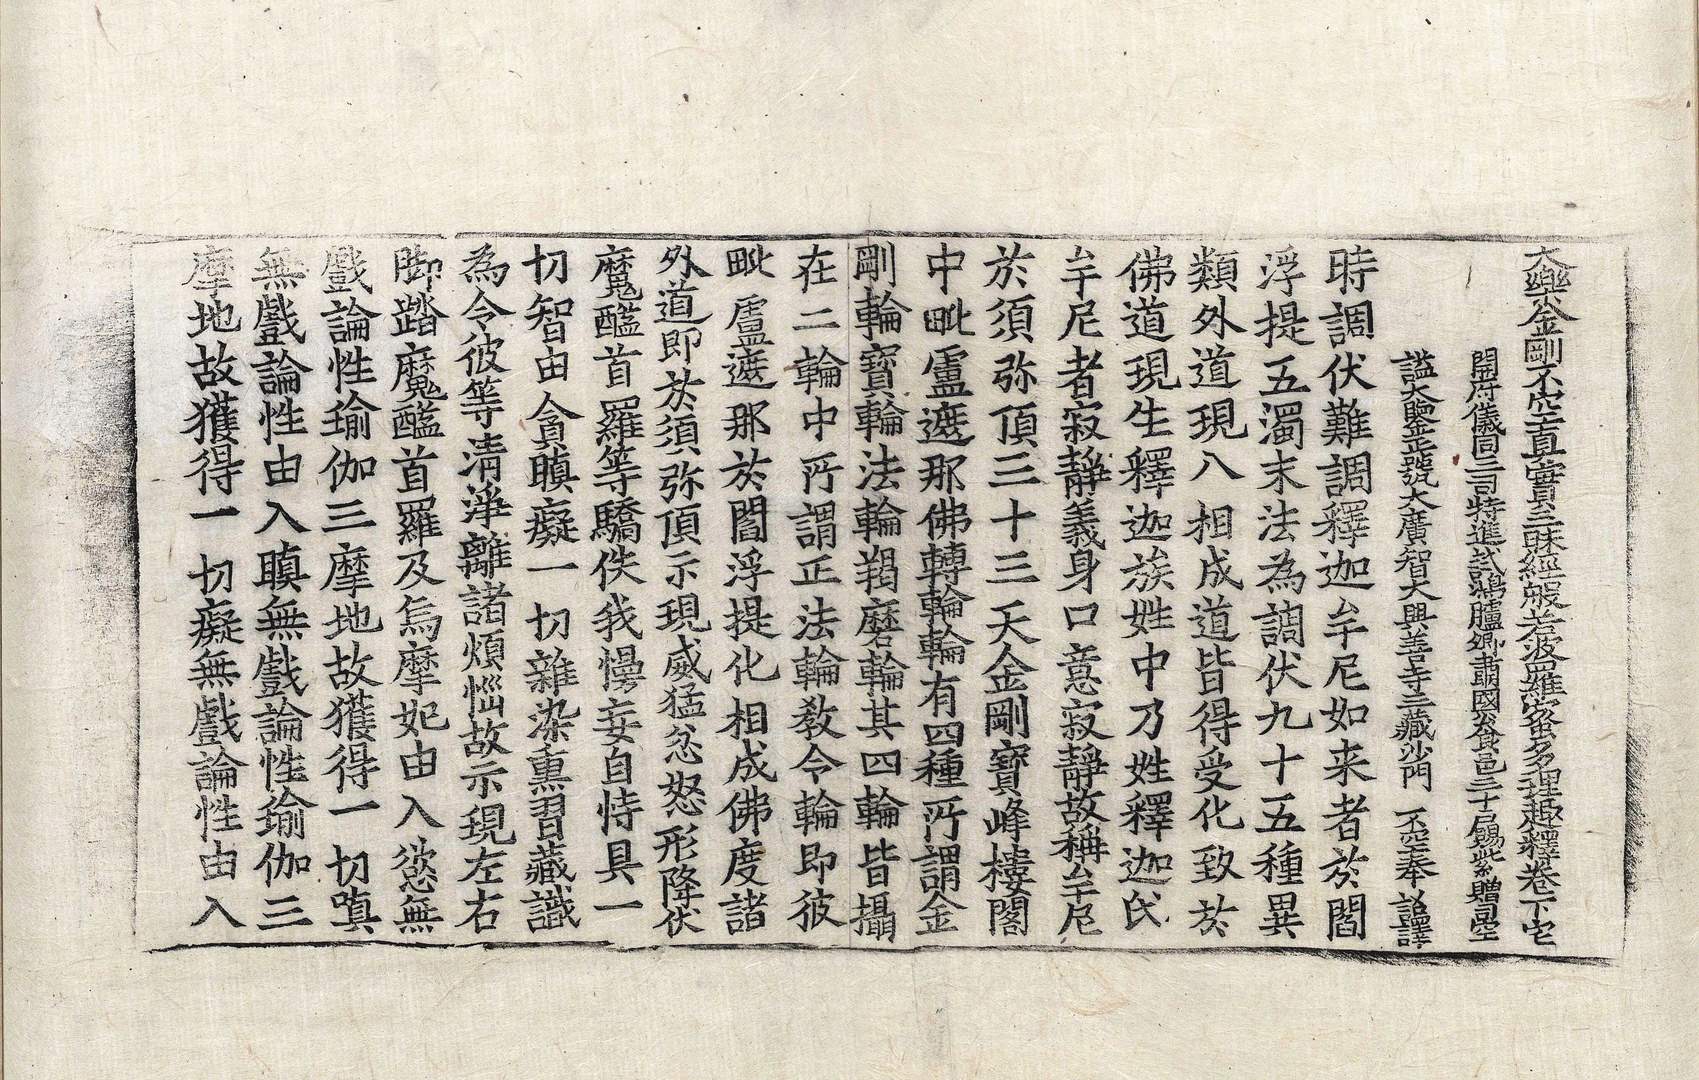 大樂金剛不空真實三昧經般若波羅蜜多理趣釋卷下 宅
開府儀同三司特進試鴻臚卿肅國公食邑三千戶賜紫贈司空
諡大鑒正號大廣智大興善寺三藏沙門 不空奉 詔譯
時調伏難調釋迦牟尼如来者於閻
浮提五濁末法為調伏九十五種異
類外道現八相成道皆得受化致於
佛道現生釋迦族姓中乃姓釋迦氏
牟尼者寂靜義身口意寂靜故稱牟尼
於須弥頂三十三天金剛寶峰樓閣
中毗盧遮那佛轉輪輪有四種所謂金
剛輪寶輪法輪羯磨輪其四輪皆攝
在二輪中所謂正法輪教令輪即彼
毗盧遮那於閻浮提化相成佛度諸
外道即於須弥頂示現威猛忿怒形降伏
魔醯首羅等驕佚我慢妄自恃具一
切智由貪瞋癡一切雜染熏習藏識
為令彼等清淨離諸煩惱故示現左右
脚踏魔醯首羅及烏摩妃由入慾無
戲論性瑜伽三摩地故獲得一切瞋
無戲論性由入瞋無戲論性瑜伽三
摩地故獲得一切癡無戲論性由入